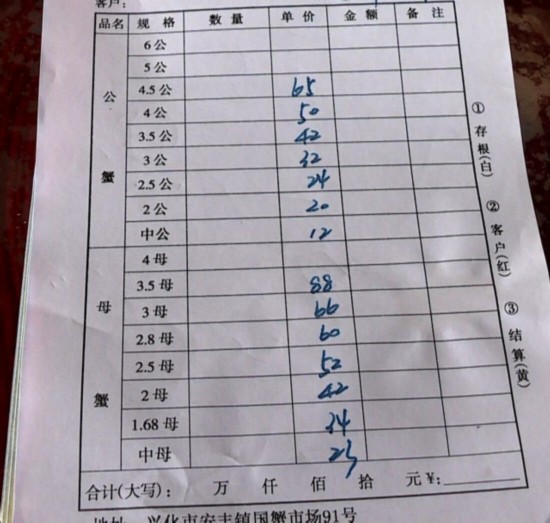 客户：
品名 规格 数量 单价 金额 备注
公蟹 6公
5公
4.5公 65
4公 50
3.5公 42
3公 32
2.5公 24
2公 20
中公 12
母蟹 4母
3.5母 88
3母 66
2.8母 60
2.5母 52
2母 42
1.68母 34
中母 25
合计(大写)： 万 仟 佰 拾 元 ¥:
地址 兴化市安丰镇国蟹市场91号
①存根(白) ②客户(红) ③结算(黄)